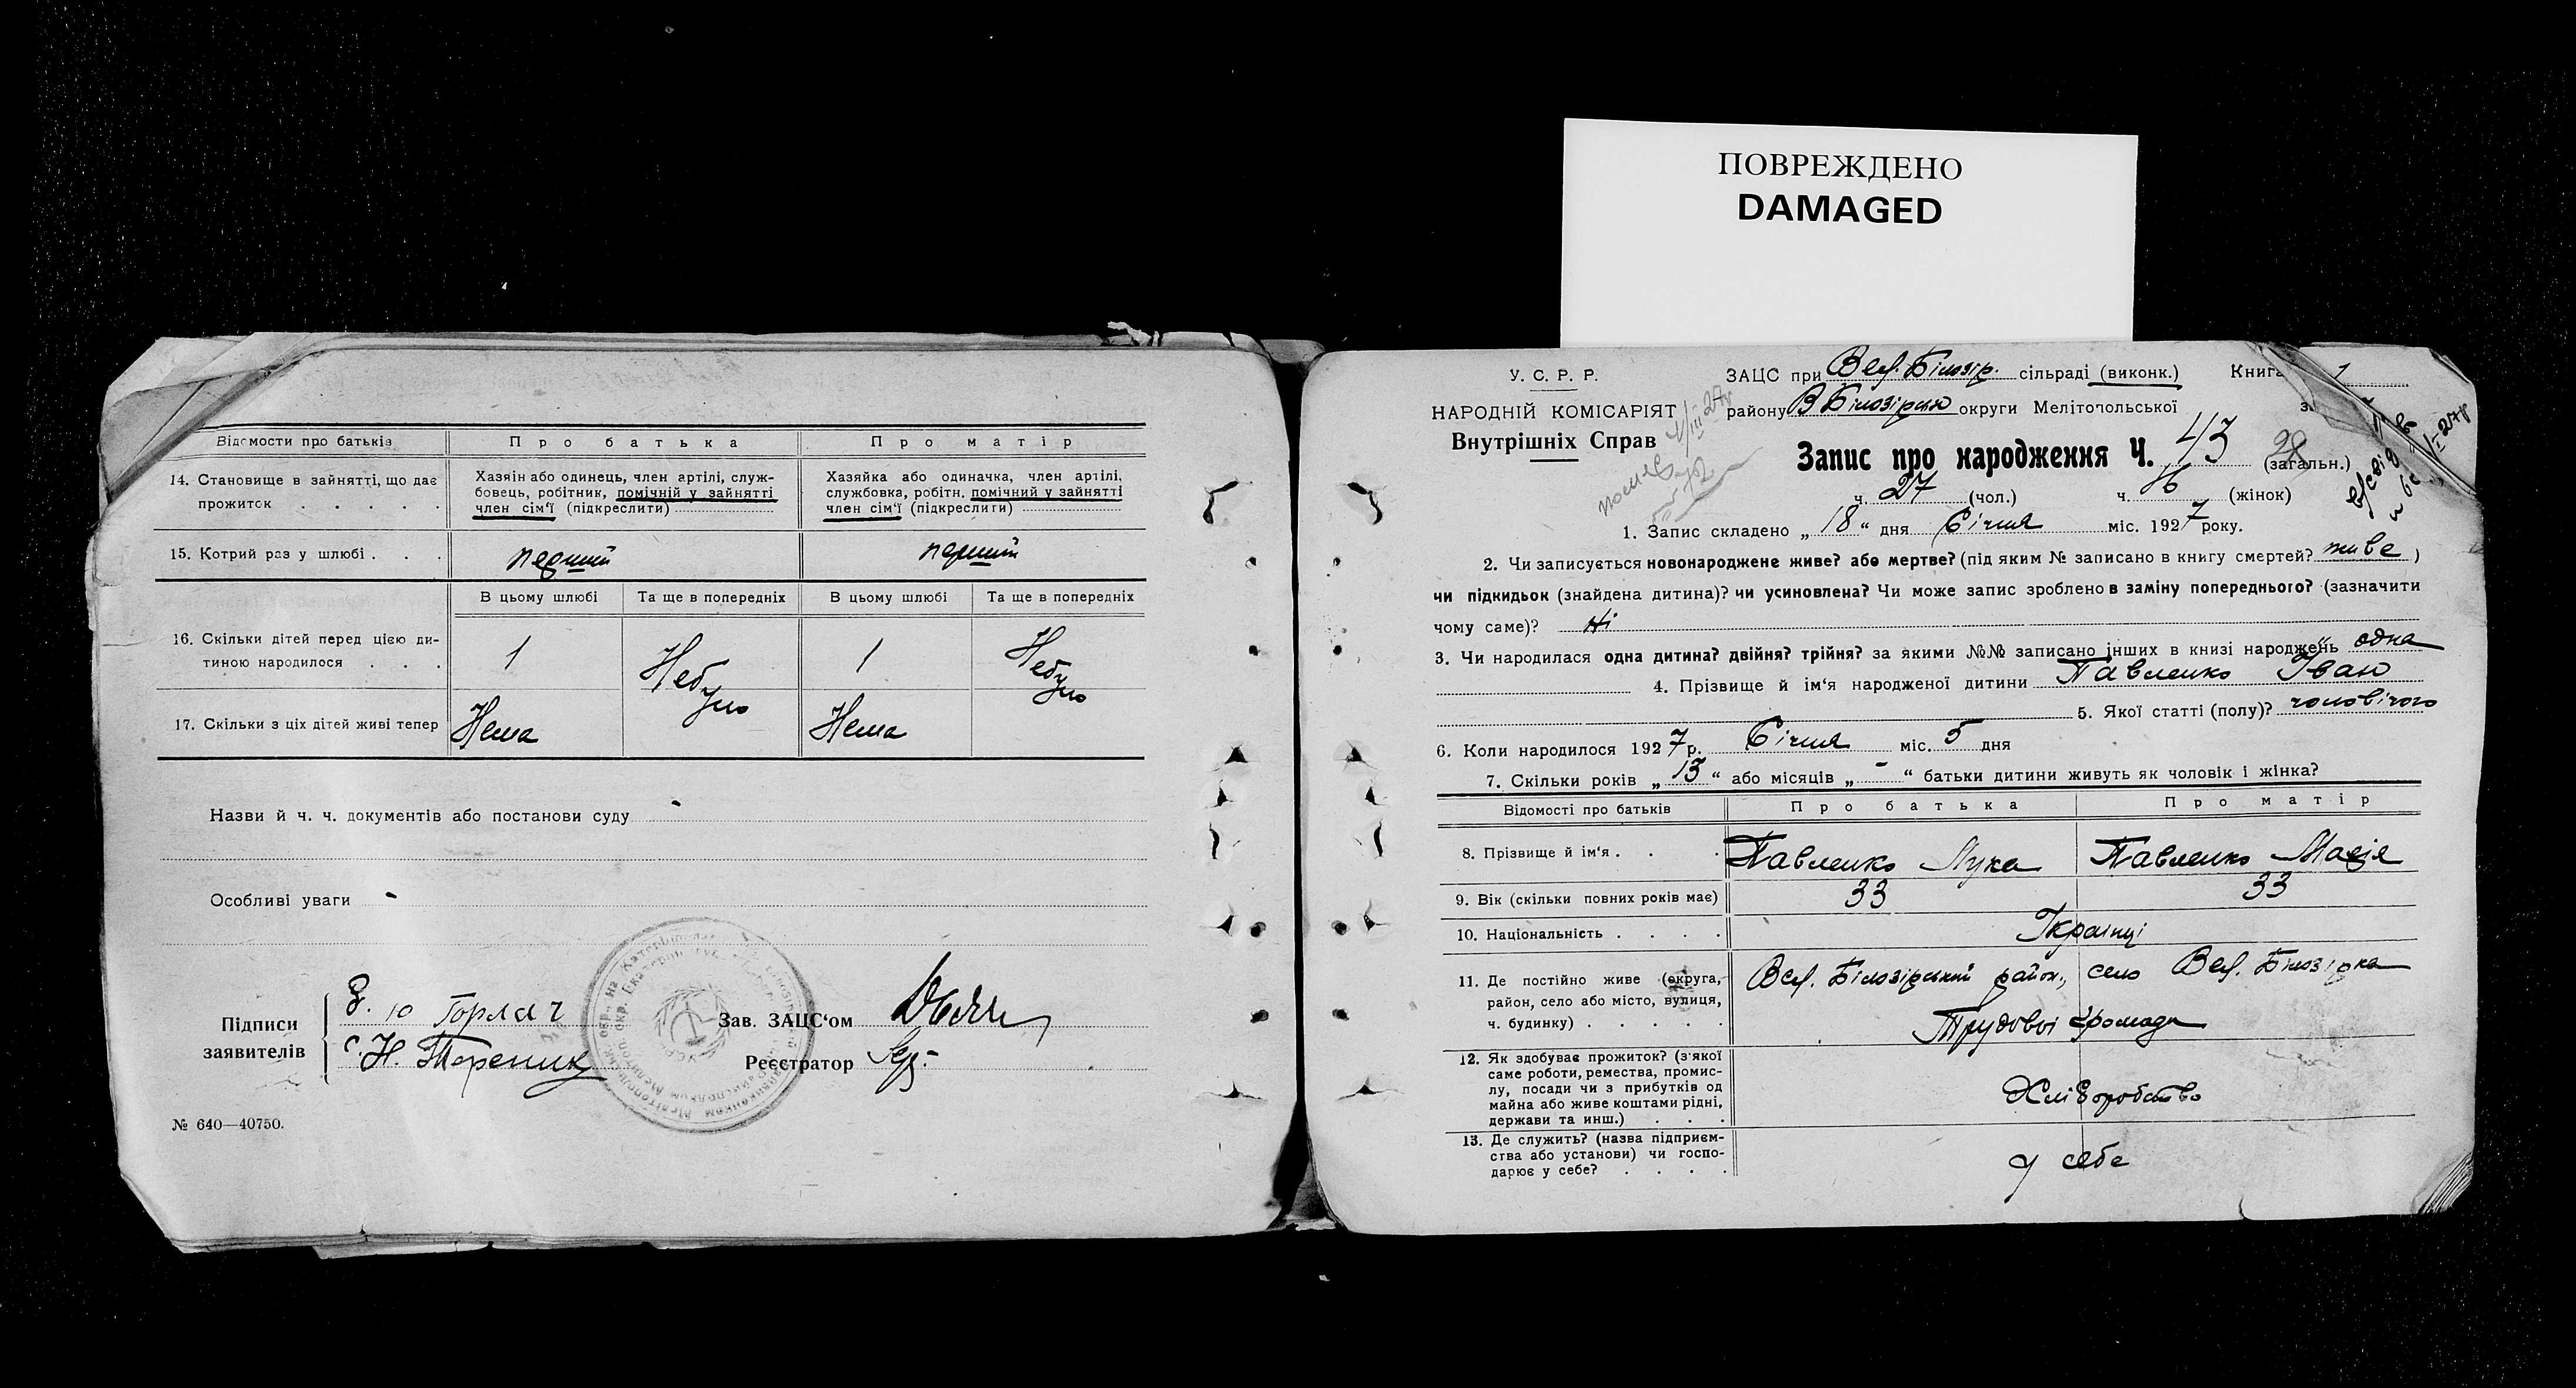 ПОВРЕЖДЕНО
DAMAGED
Відомости про батьків
Про батька
Про матір
14. Становище в зайнятті, що дає прожиток . . . . .
Хазяін або одинець, член артілі, служ-
бовець, робітник, помічній у зайнятті
член сім'ї (підкреслити)
Хазяйка або одиначка, член артілі,
службовка, робітн. помічний у зайнятті
член сім'ї (підкреслити)
15. Котрий раз у шлюбі . . .
перший
перший
В цьому шлюбі
Та ще в попередніх
В цьому шлюбі
Та ще в попередніх
16. Скільки дітей перед цією ди-
тиною народилося . . .
1
Небуло
1
Небуло
17. Скільки з ціх дітей живі тепер
Нема
Нема
Назви й ч. ч. документів або постанови суду -
Особливі уваги -
Підписи
заявителів
Горлач
Зав. ЗАЦС'ом
Реєстратор
№ 640—40750.
У. С. Р. Р.
НАРОДНІЙ КОМІСАРІЯТ
Внутрішніх Справ
ЗАЦС при Вел. Білозір. сільраді (виконк.)
Книга 1
району В Білозірськ округи Мелітопольської
Запис про народження Ч. 43 (загальн.)
ч. 27 (чол.) ч. 16 (жінок)
1. Запис складено „ 18 “ дня Січня міс. 1927 року.
2. Чи записується новонароджене живе? або мертве? (під яким № записано в книгу смертей? живе )
чи підкидьок (знайдена дитина)? чи усиновлена? Чи може запис зроблено в заміну попереднього? (зазначити
чому саме)? Ні
3. Чи народилася одна дитина? двійня? трійня? за якими №№ записано інших в книзі народжень одна
4. Прізвище й ім'я народженої дитини Павленко Іван
5. Якої статті (полу)? чоловічого
6. Коли народилося 1927 р. Січня міс. 5 дня
7. Скільки років „ 13 “ або місяців „ - “ батьки дитини живуть як чоловік і жінка?
Відомості про батьків
Про батька
Про матір
8. Прізвище й ім'я . . .
Павленко Лука
Павленко Марія
9. Вік (скільки повних років має)
33
33
10. Національність . . . .
Українці
11. Де постійно живе (округа,
район, село або місто, вулиця,
ч. будинку) . . . . .
Вел. Білозірський район, село Вел. Білозірка
Трудової громади
12. Як здобуває прожиток? (з'якої
саме роботи, ремества, промис-
лу, посади чи з прибутків од
майна або живе коштами рідні,
держави та инш.) . . .
Хліборобство
13. Де служить? (назва підприєм-
ства або установи) чи госпо-
дарює у себе? . . . .
у себе